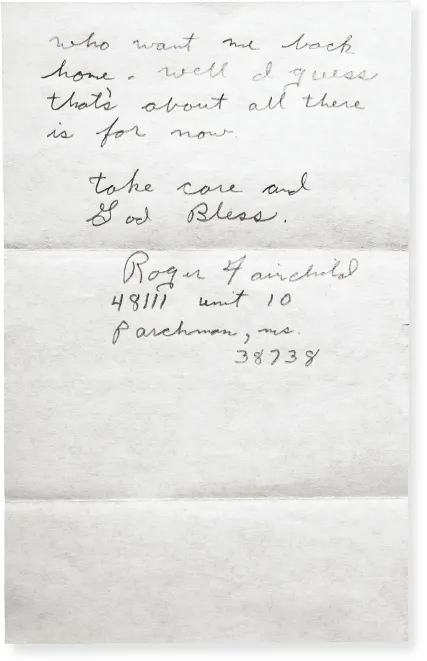 who want me back
home. well I guess
that's about all there
is for now
take care and
God Bless.
Roger Fairchild
48111 unit 10
Parchman, ms.
38738